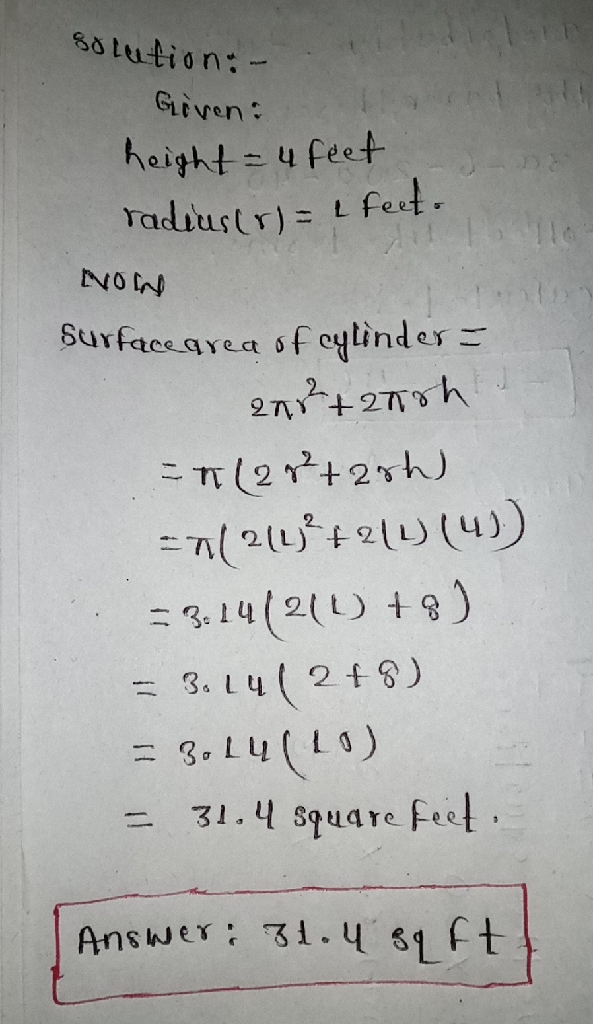 solution:-
Given:
height = 4 feet
radius(r) = 1 feet.
NOW
Surface area of cylinder =
2πr²+2πrh
= π(2r²+2rh)
= π(2(1)²+2(1)(4))
= 3.14(2(1)+8)
= 3.14(2+8)
= 3.14(10)
= 31.4 square feet.
Answer: 31.4 sq ft